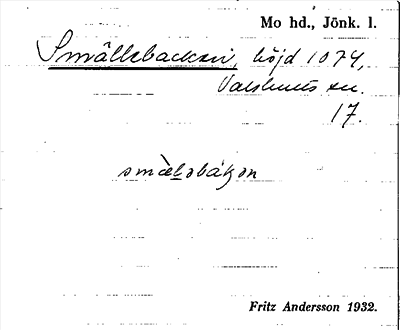 Mo hd., Jönk. l.
Smällebacken, höjd 1074,
Valshults en.
17.
smæ̀lǝbákǝn
Fritz Andersson 1932.